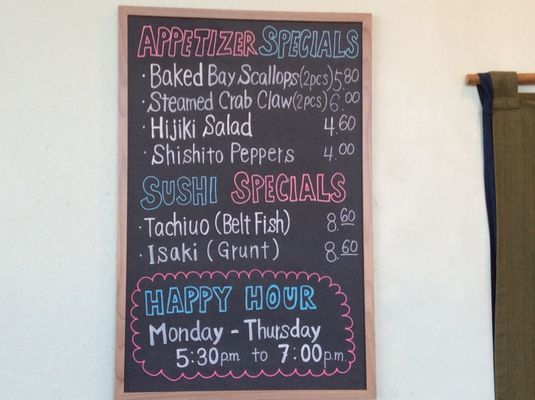 APPETIZER SPECIALS
· Baked Bay Scallops (2pcs) 5.80
· Steamed Crab Claw (2pcs) 6.00
· Hijiki Salad 4.60
· Shishito Peppers 4.00
SUSHI SPECIALS
· Tachiuo (Belt Fish) 8.60
· Isaki (Grunt) 8.60
HAPPY HOUR
Monday - Thursday
5:30p.m. to 7:00p.m.